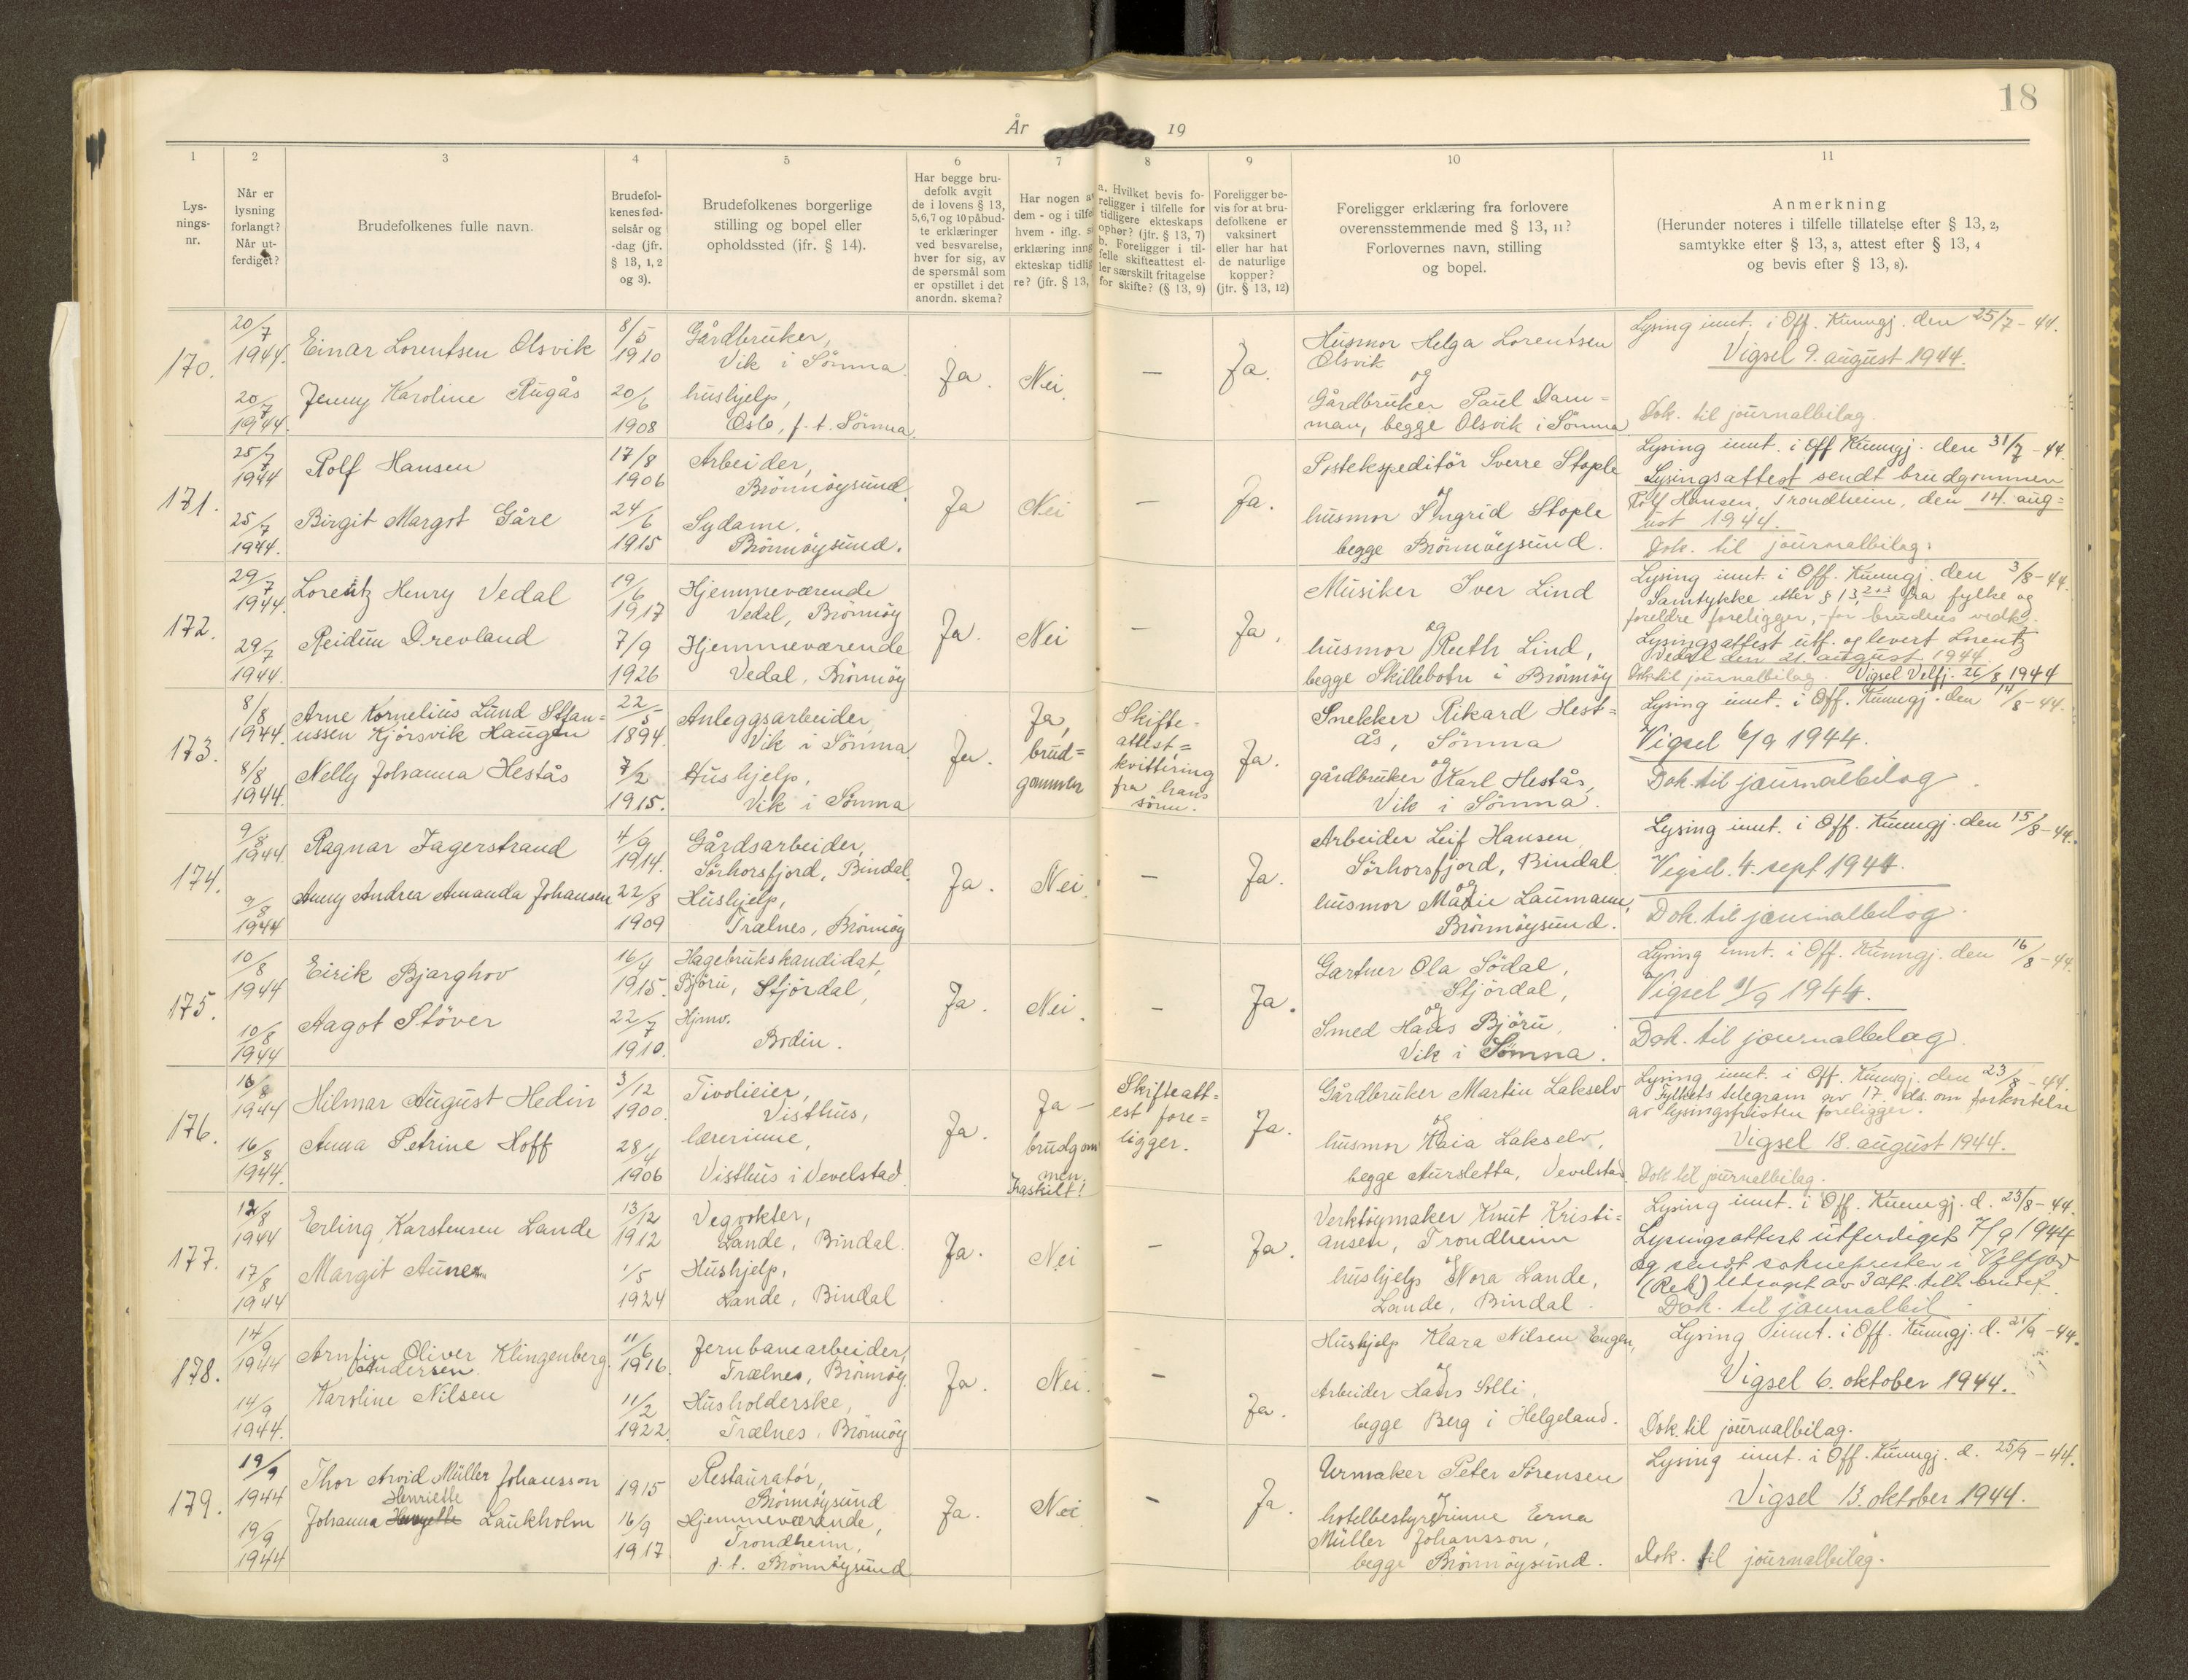 18
År 19
1 2 3 4 5 6 7 8 9 10 11
Lys-
nings-
nr.
Når er
lysning
forlangt?
Når ut-
ferdiget?
Brudefolkenes fulle navn.
Brudefol-
kenes fød-
selsår og
-dag (jfr.
§ 13, 1, 2
og 3).
Brudefolkenes borgerlige
stilling og bopel eller
opholdssted (jfr. § 14).
Har begge bru-
defolk avgit
de i lovens § 13,
5,6,7 og 10 påbud-
te erklæringer
ved besvarelse,
hver for sig, av
de spørsmål som
er opstillet i det
anordn. skema?
Har nogen a
dem - og i tilfe
hvem - iflg. s
erklæring inng
ekteskap tidlig
re? (jfr. § 13,
a. Hvilket bevis fo-
religger i tilfelle for
tidligere ekteskaps
ophør? (jfr. § 13, 7)
b. Foreligger i til-
felle skifteattest el-
ler særskilt fritagelse
for skifte? (§ 13, 9)
Foreligger be-
vis for at bru-
defolkene er
vaksinert
eller har hat
de naturlige
kopper?
(jfr. § 13, 12)
Foreligger erklæring fra forlovere
overensstemmende med § 13, 11?
Forlovernes navn, stilling
og bopel.
Anmerkning
(Herunder noteres i tilfelle tillatelse efter § 13, 2,
samtykke efter § 13, 3, attest efter § 13, 4
og bevis efter § 13, 8).
170.
20/7
1944.
Einar Lorentsen Olsvik
8/5
1910
Gårdbruker,
Vik i Sömna.
20/7
1944.
Jenny Karoline Rugås
20/6
1908
hushjelp,
Oslo, f.t. Sömna.
Ja.
Nei.
—
Ja.
Husmor Helga Lorentsen
Olsvik
og
Gårdbruker Paul Dam=
man, begge Olsvik i Sömna
Lysing innt. i Off. Kunngj. den 25/7 - 44.
Vigsel 9. august 1944.
Dok. til journalbilag.
171.
25/7
1944
Rolf Hansen
17/8
1906
Arbeider,
Brönnöysund.
25/7
1944.
Birgit Margot Gåre
24/6
1915
Sydame,
Brönnöysund.
Ja
Nei
—
Ja.
Postekspeditör Sverre Stople
og
husmor Ingrid Stople
begge Brönnöysund.
Lysing innt. i Off Kunngj. den 31/7 - 44.
Lysingsattest sendt brudgommen
Rolf Hansen, Trondheim, den 14. aug=
ust 1944.
Dok. til journalbilag.
172.
29/7
1944.
Lorentz Henry Vedal
19/6
1917
Hjemmeværende
Vedal, Brönnöy
29/7
1944.
Reidun Drevland
7/9
1926
Hjemmeværende
Vedal, Brönnöy
Ja.
Nei
—
Ja.
Musiker Iver Lind
og
husmor Ruth Lind,
begge Skillebotn i Brönnöy
Lysing innt. i Off. Kunngj. den 3/8 - 44.
Samtykke etter § 13, 2+3 fra fylke og
foreldre foreligger, - for brudens vedk.
Lysingsattest utf. og levert Lorentz
Vedal den 21. august 1944
Dok. til journalbilag. Vigsel Velfj. 26/8 1944
173.
8/8
1944.
Arne Kornelius Lund Stfan=
ussen Kjörsvik Haugen
22/5
1894.
Anleggsarbeider,
Vik i Sömna
8/8
1944.
Nelly Johanna Hestås
7/2
1915.
Hushjelp,
Vik i Sömna
Ja.
Ja,
brud=
gommen
Skifte-
attest,=
kvittering
fra hans
sönn.
Ja.
Snekker Rikard Hest=
ås, Sömna
og
gårdbruker Karl Hestås,
Vik i Sömna.
Lysing innt. i Off. Kunngj. den 14/8 - 44.
Vigsel 6/9 1944.
Dok. til journalbilag.
174.
9/8
1944.
Ragnar Fagerstrand
4/9
1914.
Gårdsarbeider,
Sörhorsfjord, Bindal.
9/8
1944
Anny Andrea Amanda Johansen
22/8
1909
Hushjelp,
Trælnes, Brönnöy
Ja.
Nei.
—
Ja.
Arbeider Leif Hansen
Sörhorsfjord, Bindal.
og
husmor Marie Laumann,
Brönnöysund.
Lysing innt. i Off. Kunngj. den 15/8 - 44.
Vigsel. 4. sept 1944.
Dok. til journalbilag.
175.
10/8
1944
Eirik Bjarghov
16/4
1915.
Hagebrukskandidat,
Björu, Stjördal,
10/8
1944
Aagot Stöver
22/7
1910.
Hjmv.
Bodin.
Ja.
Nei.
—
Ja.
Gartner Ola Södal,
Stjördal,
og
Smed Hans Björu,
Vik i Sömna.
Lysing innt. i Off. Kunngj. den 16/8 - 44.
Vigsel 9/9 1944.
Dok. til journalbilag.
176.
16/8
1944
Hilmar August Hedin
3/12
1900.
Tivolieier,
Visthus,
16/8
1944.
Anna Petrine Hoff
28/4
1906
lærerinne,
Visthus i Vevelstad.
Ja.
Ja -
brudgom
men.
Fraskilt!
Skifteatt-
est fore=
ligger.
Ja.
Gårdbruker Martin Lakselv
og
husmor Kaia Lakselv,
begge Aursletta, Vevelstad.
Lysing innt. i Off. Kunngj. den 23/8 - 44.
Fylkets telegram av 17. ds. om forkortelse
av lysingsfristen foreligger.
Vigsel 18. august 1944.
Dok til journalbilag.
177.
17/8
1944
Erling Karstensen Lande
13/12
1912
Vegvokter,
Lande, Bindal.
17/8
1944
Margit Aunes
1/5
1924
Hushjelp,
Lande, Bindal
Ja.
Nei
—
Ja.
Verktöymaker Knut Kristi=
ansen, Trondheim
og
hushjelp Nora Lande,
Lande, Bindal.
Lysing innt. i Off. Kunngj. d. 23/8 - 44.
Lysingsattest utferdiget 7/9 1944
og sendt sokneprestem i Velfjord
(Rek)
Dok. til journalbil.
178.
14/9
1944
Arnfin Oliver Klingenberg.
Andersen.
11/6
1916.
Jernbanearbeider,
Trælnes, Brönnöy.
14/9
1944.
Karoline Nilsen
11/2
1922.
Husholderske,
Trælnes, Brönnöy
Ja.
Nei.
—
Ja.
Hushjelp Klara Nilsen Engen,
og
Arbeider Hans Solli,
begge Berg i Helgeland.
Lysing innt. i Off. Kunngj. d. 21/9 - 44.
Vigsel 6. oktober 1944.
Dok. til journalbilag.
179.
19/9
1944
Thor Arvid Müller Johansson
1915
Restauratör,
Brönnöysund
19/9
1944
Henriette
Johanna Laukholm
16/9
1917
Hjemmeværende,
Trondheim,
f.t. Brönnöysund
Ja.
Nei
—
Ja.
Urmaker Peter Sörensen
og
hotelbestyrerinne Erna
Müller Johansson,
begge Brönnöysund.
Lysing innt. i Off. Kunngj. d. 25/9 - 44.
Vigsel 13. oktober 1944.
Dok. til journalbilag.